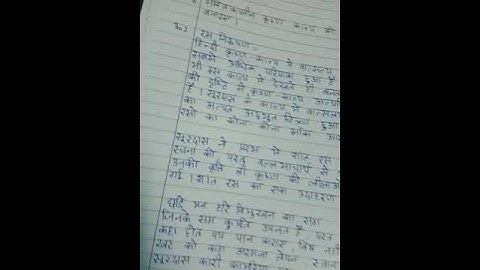 भक्तिकालीन कृष्ण काव्य की
बताइए।
रस निरूपण -
हिन्दी कृष्ण-काव्य में वात्सल्य
सबसे अधिक परिपाक हुआ है
भी इस काव्य में देखते ही
की दृष्टि से कृष्ण-काव्य
है। सूरदास के काव्य में वात्सल्य
का अत्यंत अद्भुत चित्रण हुआ
रसों का कोना-कोना झाँक
सूरदास ने प्रारंभ में शांत रस
रचना की परंतु वल्लभाचार्य से
उनकी वृत्ति भी कृष्ण की लीलाओं
गई। शांत रस का एक उदाहरण
छाँड़ि मन हरि विमुखन का संग
जिनके संग कुमति उपजत है, परत
कहा होत पय पान कराए, विष नहीं
खर को कहा अरगजा लेपन, स्वान
सूरदास कारी कामरिया